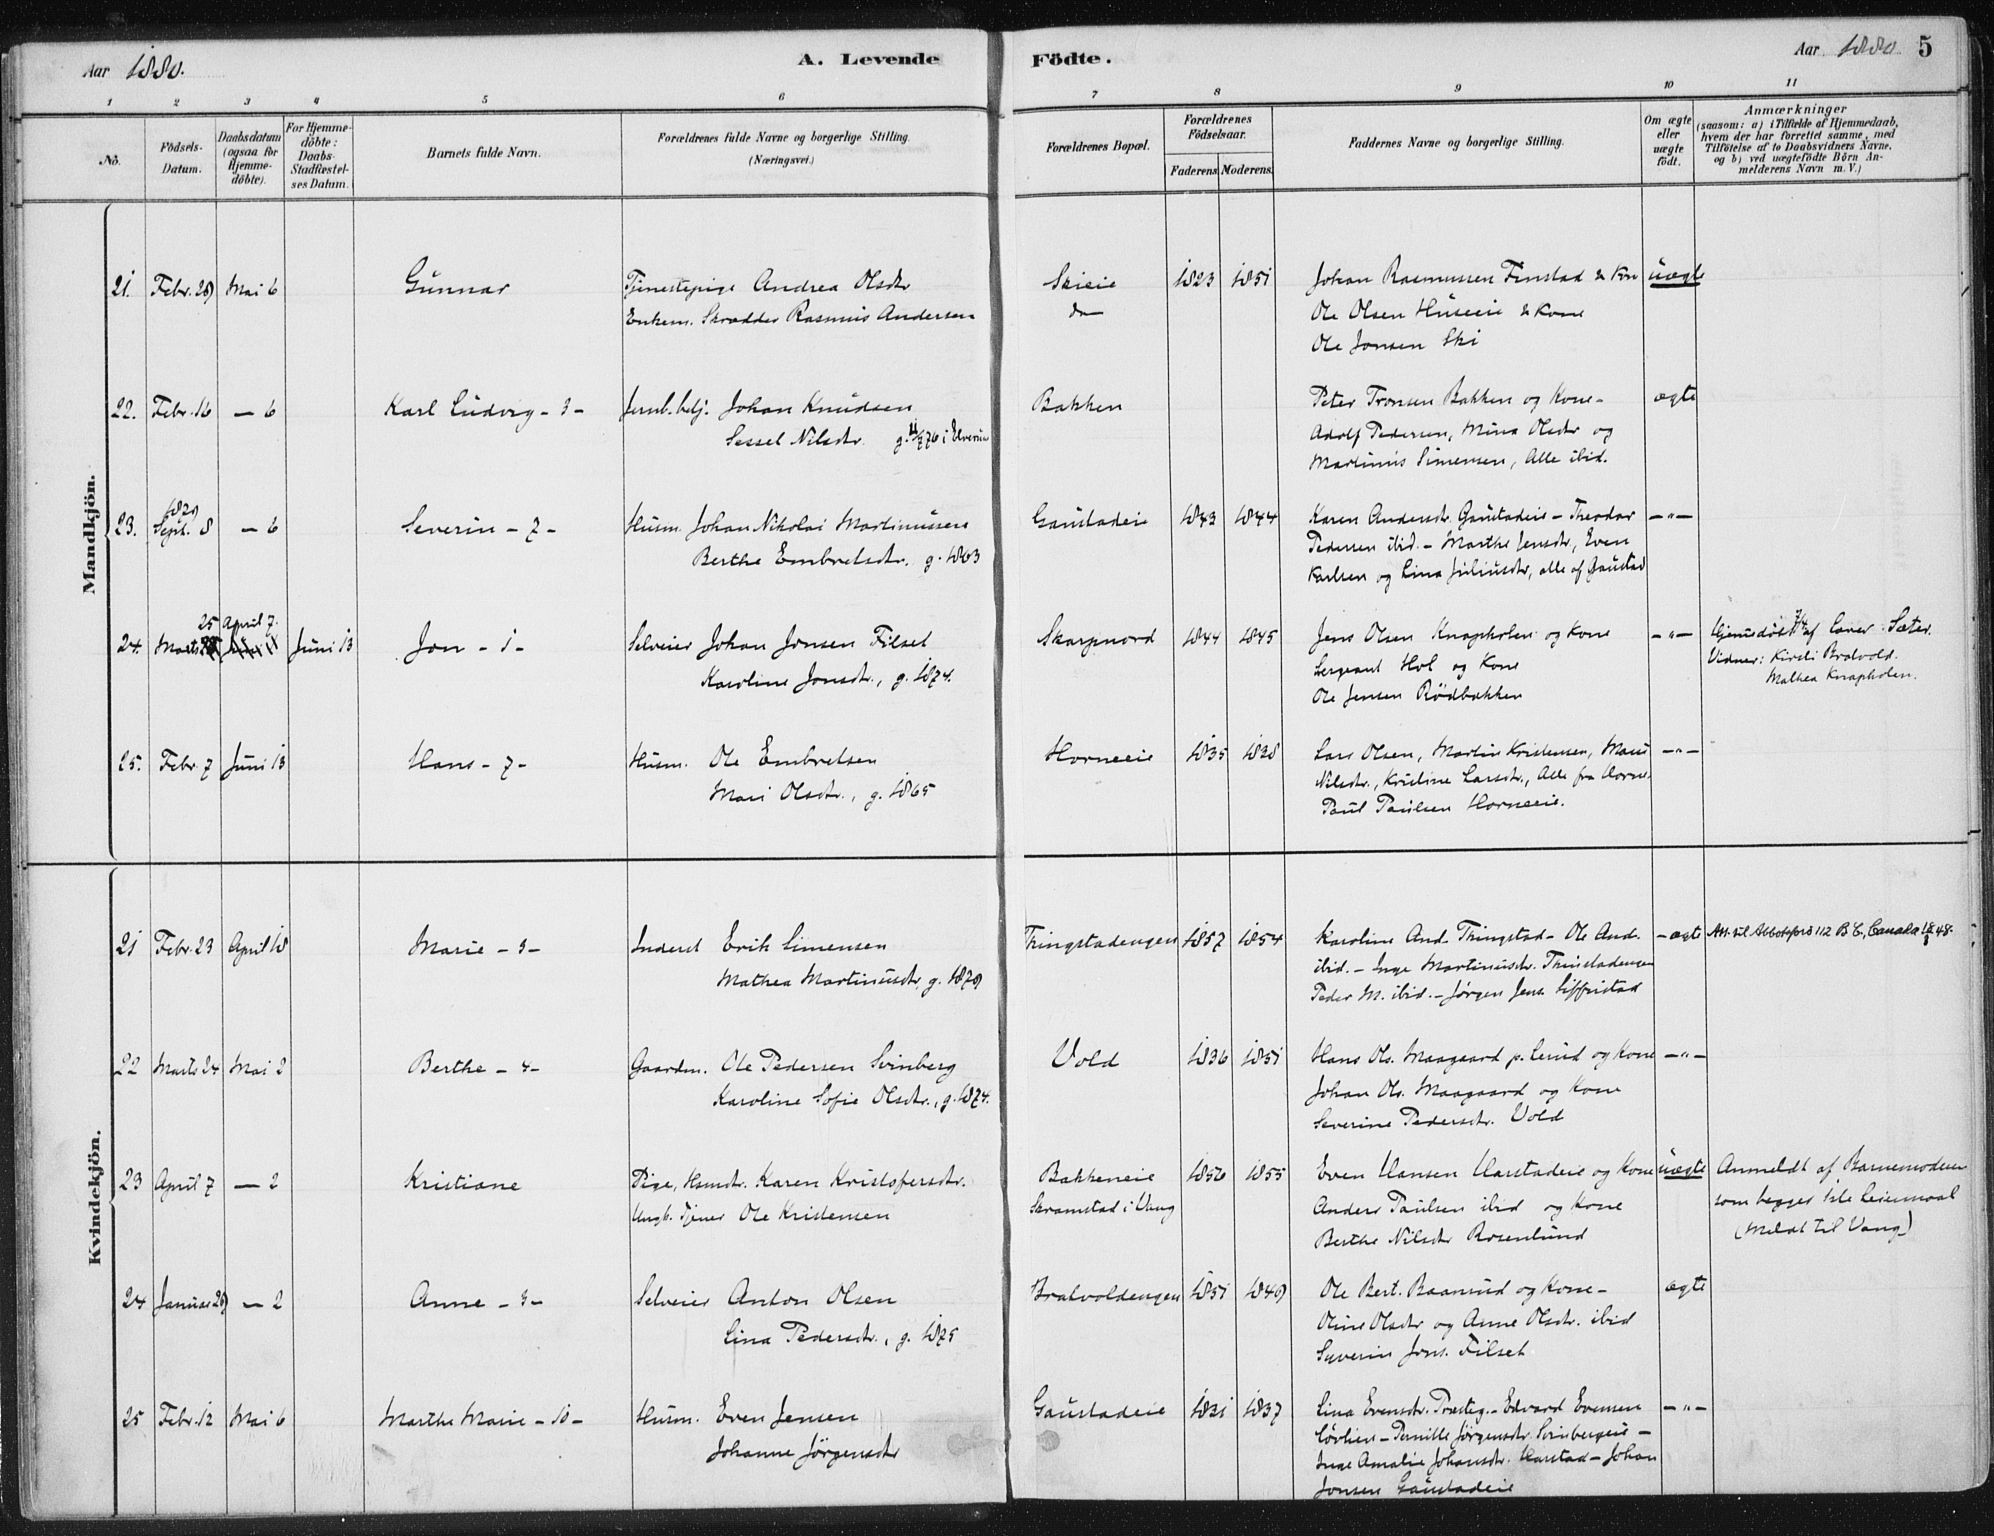 Aar 1880. A. Levende Födte. Aar 1880. 5
1 2 3 4 5 6 7 8 9 10 11
No. Födsels-Datum. Daabsdatum (ogsaa for Hjemme-döbte). For Hjemme-döbte: Daabs-Stadfæstel-ses Datum. Barnets fulde Navn. Forældrenes fulde Navne og borgerlige Stilling. (Næringsvei.) Forældrenes Bopæl. Forældrenes Födselsaar. Faderens Moderens. Faddernes Navne og borgerlige Stilling. Om ægte eller uægte födt. Anmærkninger (saasom: a) i Tilfælde af Hjemmedaab, hvem der har forrettet samme, med Tilföielse af to Daabsvidners Navne, og b) ved uægtefödte Börn An-melderens Navn m. V.)
Mandkjön.
21. Febr. 29 Mai 6 Gunnar Tjenestepige Andrea Olsdtr Skieie 1823 1851 Johan Rasmussen Finstad & Kone uægte
Enkem. Skrædder Rasmus Andersen do Ole Olsen Huseeie & Kone
Ole Jonsen Ski
22. Febr. 16 — 6 Karl Ludvig - 3 - Jernb. belj. Johan Knudsen Bakken Peter Tronsen Bakken og Kone - ægte
Sessel Nilsdtr. g. 76 i Elverum Adolf Pedersen, Mina Olsdtr og
Martinus Simensen, Alle ibid.
23. 1879 Sept. 8 — 6 Severin - 7 - Husm. Johan Nikolai Martinussen Gaustadeie 1843 1844 Karen Andersdtr. Gaustadeie - Theodor -"-
Berthe Embretsdtr. g. 1863 Pedersen ibid. - Marthe Jensdtr, Even
Karlsen og Lina Juliusdtr, alle af Gaustad
24. Marts 25 April 7. Juni 13 Jon - 1 - Selveier Johan Jonsen Filset Skarpnord 1844 1845 Jens Olsen Knapholen og Kone -"- Hjemmedøbt 7/4 af Lærer Sæter.
Karoline Jonsdtr., g. 1874. Sergeant Hol og Kone Vidner: Kirsti Bratvold.
Ole Jensen Rödbakken Mathea Knapholen.
25. Febr. 7 Juni 13 Hans - 7 - Husm. Ole Embretsen Horneeie 1835 1838 Lars Olsen, Martin Kristensen, Mari -"-
Mari Olsdtr., g. 1865 Nilsdtr., Kristine Larsdtr., Alle fra Horne.
Paul Paulsen Horneeie.
Kvindekjön.
21 Febr. 23 April 18 Marie - 3 - Inderst Erik Simensen Thingstadengen 1857 1854 Karoline And. Thingstad - Ole And. - ægte Att. til Abbotsford 112 B C, Canada 48.
Mathea Martinusdtr, g. 1879 ibid. - Inge Martinusdtr. Thingstadengen
Peder M. ibid. - Jørgen Jens.
22 Marts 24 Mai 2 Berthe - 4 - Gaardm. Ole Pedersen Svinberg Vold 1836 1851 Hans Ols. Maagaard p. Lund og Kone -"-
Karoline Sofie Olsdtr., g. 1874. Johan Ols. Maagaard og Kone
Severine Pedersdtr. Vold
23 April 7 — 2 Kristiane Pige, Hsmdtr. Karen Kristofersdtr. Bakkeneie 1856 1855 Even Hansen Harstadeie og Kone uægte Anmeldt af Barnemoderen
Ungk. Tjener Ole Kristensen Skramstad i Vang Anders Paulsen ibid og Kone som begges 1ste Leiermaal
Berthe Nilsdtr Rosenlund (Meldt til Vang)
24 Januar 29 — 2 Anne - 3 - Selveier Anton Olsen Bratvoldengen 1851 1849 Ole Bert. Baanrud og Kone - ægte
Lina Pedersdtr., g. 1875 Oline Olsdtr og Anne Olsdtr. ibid
Severin Jons. Filset
25 Febr. 12 Mai 6 Marthe Marie - 10 - Husm. Even Jensen Gaustadeie 1831 1837 Lina Evensdtr. Præstg. - Edvard Evensen -"-
Johanne Jørgensdtr Løvlien - Pernille Jørgensdtr. Svinbergeie -
Inge Amalie Johansdtr. Harstad - Johan
Jonsen Gaustadeie